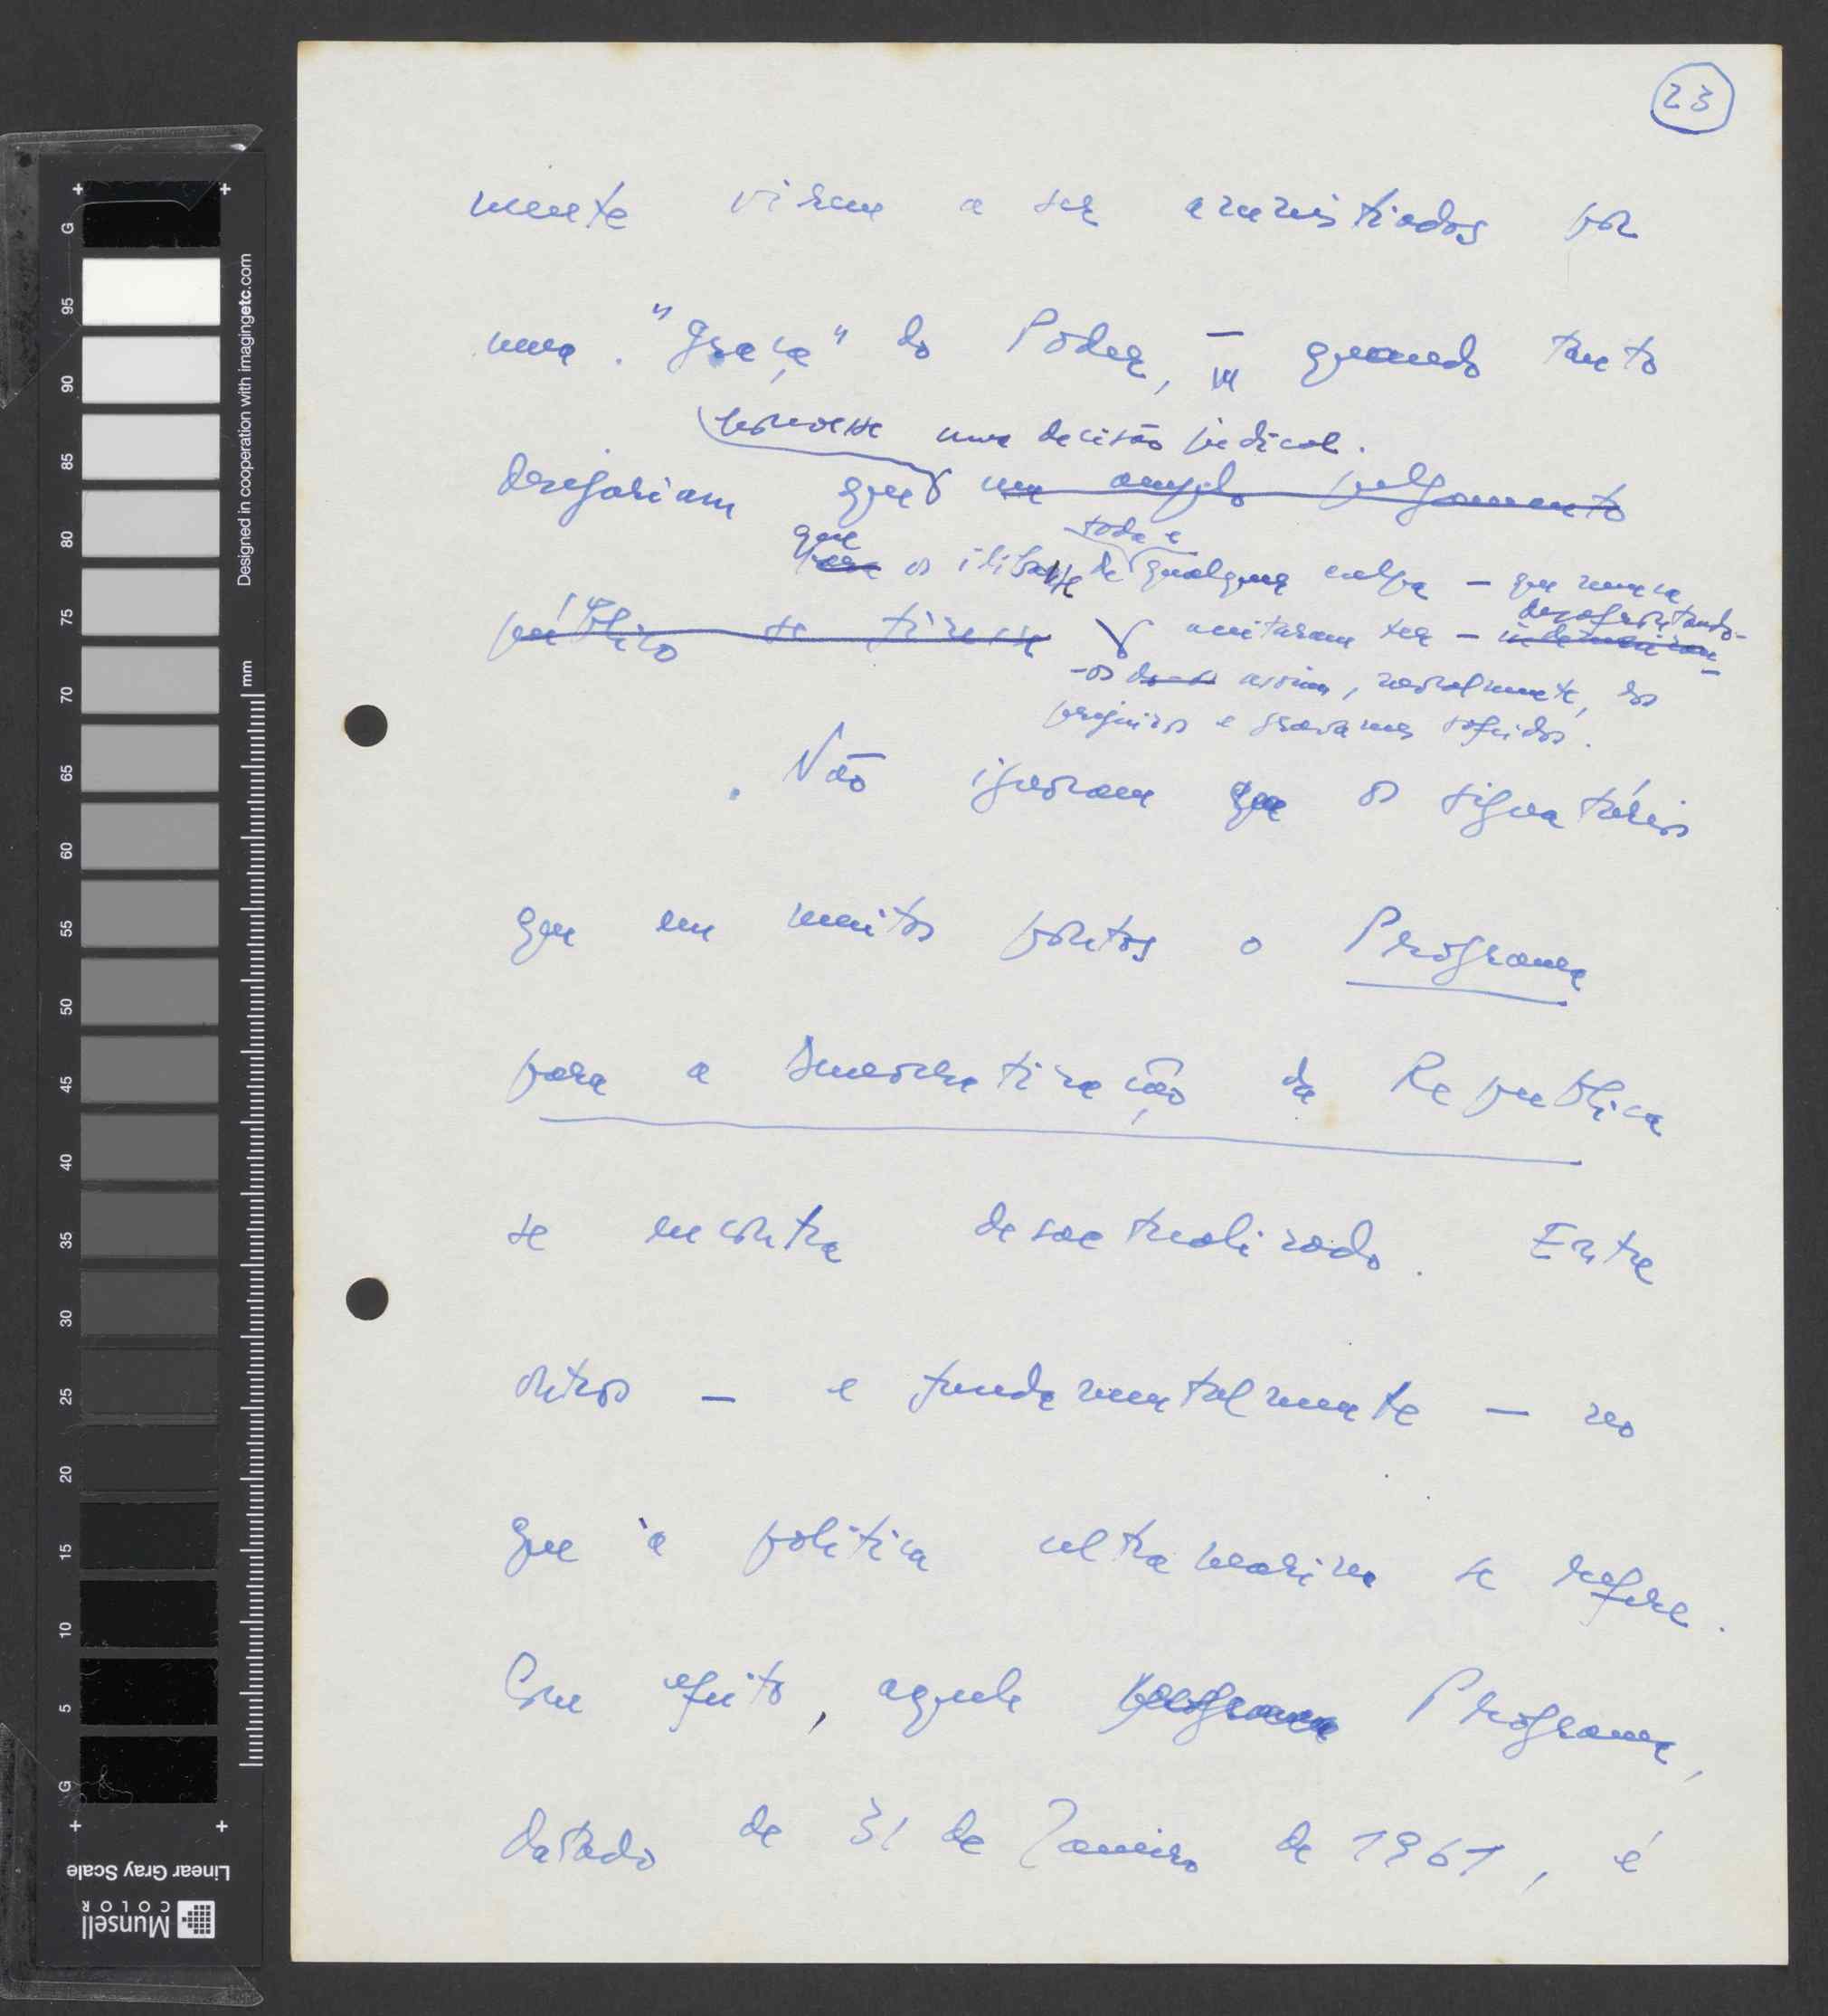 23
mente virem a ser amnistiados por
uma "graça" do Poder, — quando tanto
houvesse uma decisão judicial.
desejariam que um amplo julgamento
que toda e
para os ilibasse de qualquer culpa — que nunca
público se fizesse aceitaram ter — desafrontando-
-os assim, moralmente, dos
prejuízos e gravames sofridos.
Não ignoram que os signatários
que em muitos pontos o Programa
para a Democratização da República
se encontra desactualizado. Entre
outros — e fundamentalmente — no
que à política ultramarina se refere.
Com efeito, aquele programa Programa,
datado de 31 de Janeiro de 1961, é
G 95 90 85 80 75 70 65 60 55 50 45 40 35 30 25 20 15 10 5 G
mm
Designed in cooperation with imagingetc.com
Linear Gray Scale
Munsell
COLOR